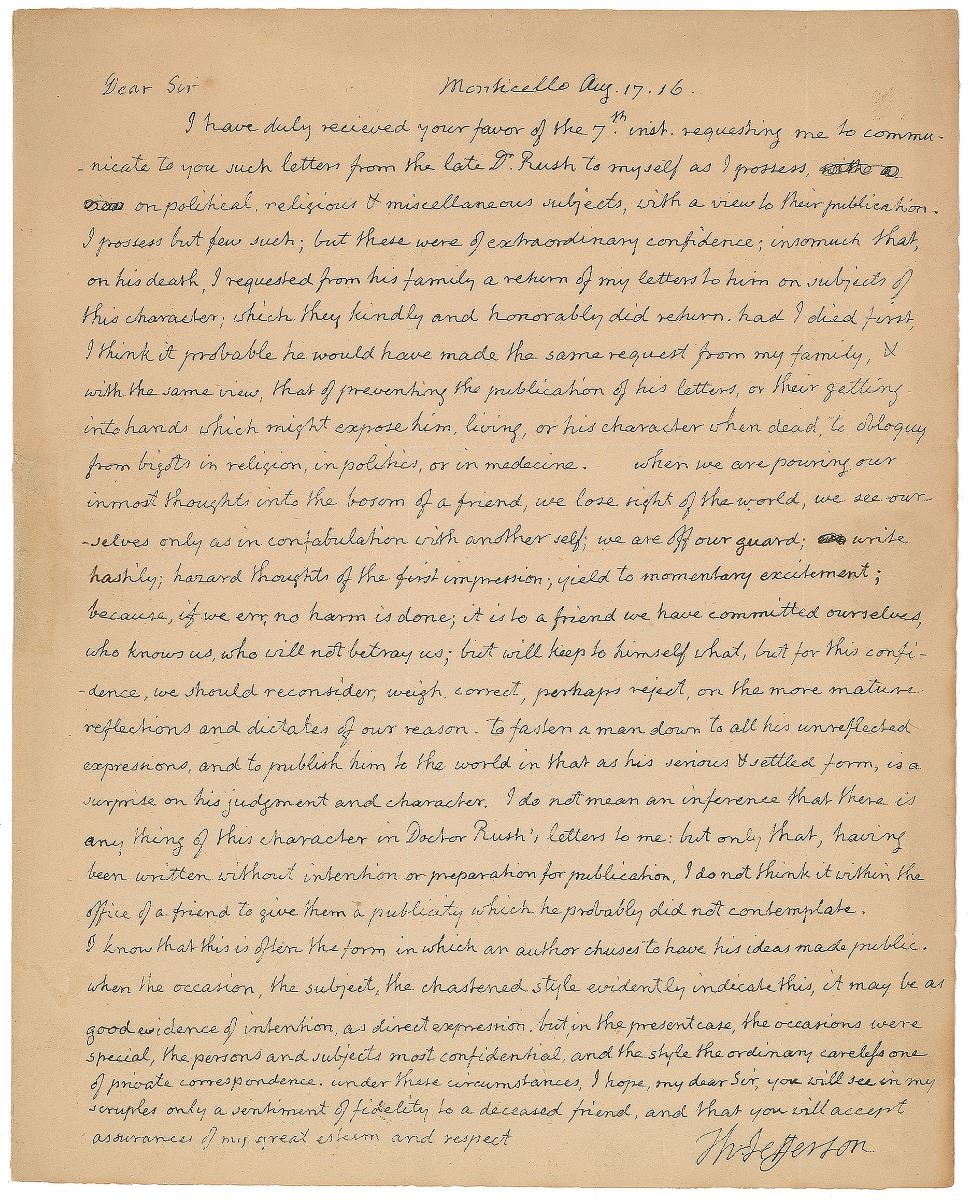 Dear Sir Monticello Aug. 17. 16.
I have duly recieved your favor of the 7th inst. requesting me to commu-
-nicate to you such letters from the late Dr. Rush to myself as I possess,
on political, religious & miscellaneous subjects, with a view to their publication.
I possess but few such; but these were of extraordinary confidence; insomuch that,
on his death, I requested from his family a return of my letters to him on subjects of
this character; which they kindly and honorably did return. had I died first,
I think it probable he would have made the same request from my family, &
with the same view, that of preventing the publication of his letters, or their getting
into hands which might expose him, living, or his character when dead, to obloquy
from bigots in religion, in politics, or in medecine. when we are pouring our
inmost thoughts into the bosom of a friend, we lose sight of the world, we see our-
-selves only as in confabulation with another self; we are off our guard; write
hastily; hazard thoughts of the first impression; yield to momentary excitement;
because, if we err, no harm is done; it is to a friend we have committed ourselves,
who knows us, who will not betray us; but will keep to himself what, but for this confi-
-dence, we should reconsider, weigh, correct, perhaps reject, on the more mature
reflections and dictates of our reason. to fasten a man down to all his unreflected
expressions, and to publish him to the world in that as his serious & settled form, is a
surprise on his judgment and character. I do not mean an inference that there is
any thing of this character in Doctor Rush's letters to me: but only that, having
been written without intention or preparation for publication, I do not think it within the
office of a friend to give them a publicity which he probably did not contemplate.
I know that this is often the form in which an author chuses to have his ideas made public.
when the occasion, the subject, the chastened style evidently indicate this, it may be as
good evidence of intention, as direct expression. but in the present case, the occasions were
special, the persons and subjects most confidential, and the style the ordinary careless one
of private correspondence. under these circumstances, I hope, my dear Sir, you will see in my
scruples only a sentiment of fidelity to a deceased friend, and that you will accept
assurances of my great esteem and respect
Th: Jefferson